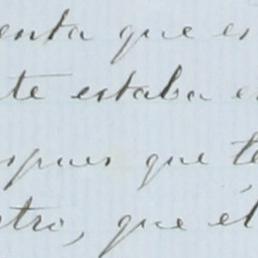 enta que es
te estaba e
spues que te
stro, que él